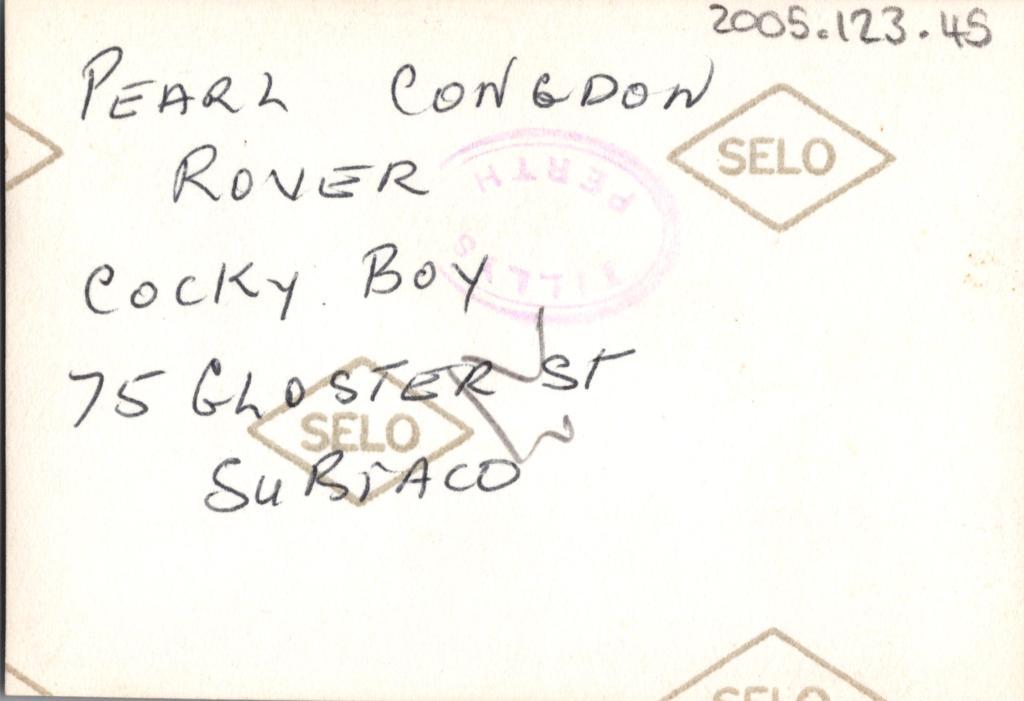 2005.123.45
PEARL CONGDON
ROVER
COCKY BOY
75 GLOSTER ST
SUBIACO
SELO
SELO
SELO
PERTH
TILLYS